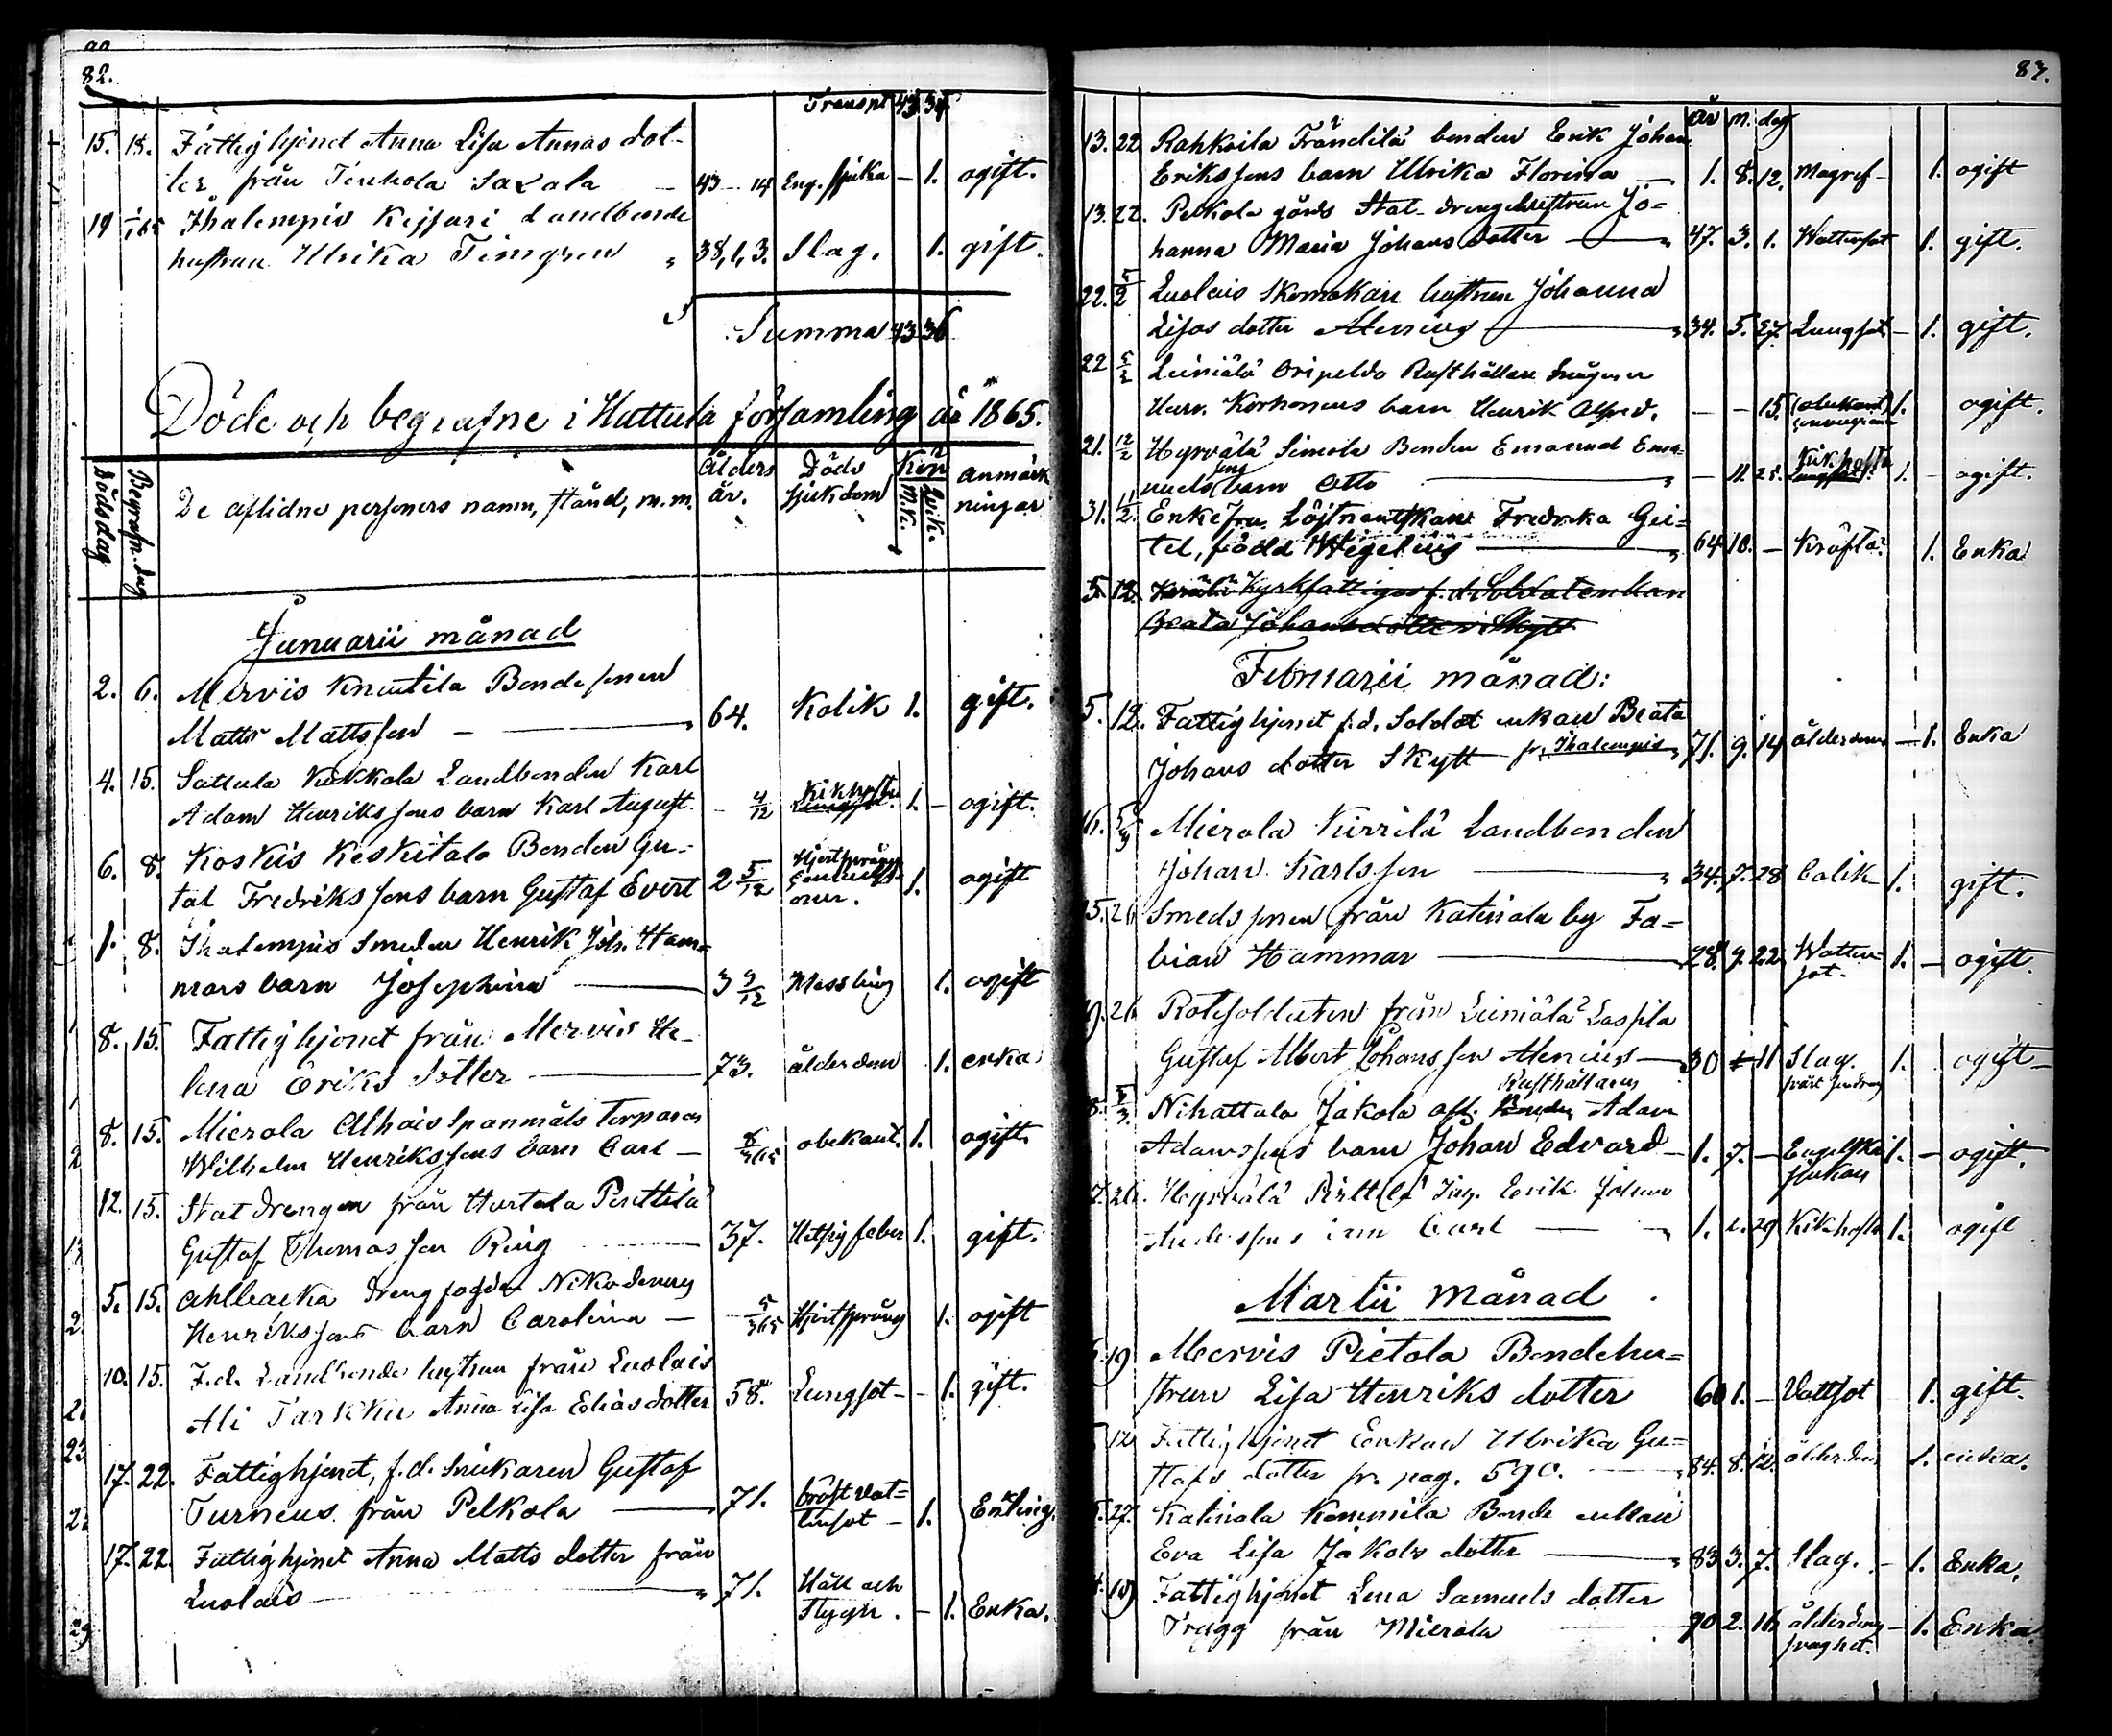 82.
Transpt 43 34
15. 18. Fattighjonet Anna Lisa Annas dot-
ter från Tenhola Saxala — 43 — 14 Eng. sjuka — 1. ogift.
19 1/1 65 Ihalempis Keijsari Landbonde
hustrun Ulrika Timgren " 38, 1, 3. Slag. 1. gift.
Summa 43 36
Döde och begrafne i Hattula församling år 1865.
Dödsdag Begrafn. dag De aflidne personers namn, stånd, m.m. Ålders år. Döds sjukdom Kön M.k. Qvk. anmärk
ningar
Januarii månad
2. 6. Mervis Knuutila Bonde sonen
Matts Mattsson — 64. Kolik 1. gift.
4. 15. Sattula Kukkola Landbonden Karl
Adam Henrikssons barn Karl August. - 4/12 Kikhosta 1. - ogift.
6. 8. Koskis Keskitalo Bonden Gu-
taf Fredrikssons barn Gustaf Evert 2 5/12 Hjertsprång 1. ogift
1. 8. Ihalempis Smeden Henrik Joh. Ham-
mars barn Josephina — 3 9/12 Messling 1. ogift
8. 15. Fattighjonet från Mervis He-
lena Eriks dotter — 73. ålderdom 1. enka
8. 15. Mierola Alhais Spanmåls Torparen
Wilhelm Henrikssons barn Carl — 8/365 obekant. 1. ogift.
12. 15. Statdrengen från Hurtala Penttilä
Gustaf Thomasson Ring 37. Hetsig feber 1. gift.
5. 15. Ahlbacka drengfogden Nikodemus
Henrikssons barn Carolina — 5/365 Hjertsprång 1. ogift
10. 15. F.d. Landbonde hustrun från Luolais
Ali Tarkki Anna Lisa Eliasdotter 58. Lungsot - - 1. gift.
17. 22. Fattighjonet, f.d. Snickaren Gustaf
Turneus från Pelkola — 71. bröst vat-
tusot — 1. Enkling.
17. 22. Fattighjonet Anna Matts dotter från
Luolais — 71. Håll och
Stygn. — 1. Enka.
83.
år m. dag
13. 22 Rahkoila Frändilä bonden Erik Johan
Erikssons barn Ulrika Florina — 1. 8. 12. Magref- 1. ogift
13. 22. Pelkola gårds Stat-drengehustrun Jo-
hanna Maria Johans dotter — 47. 3. 1. Wattusot 1. gift.
22. 5/2 Luolais Skomakare hustrun Johanna
Lisas dotter Menius — 34. 5. 27. Lungsot — 1. gift.
22 5/2 Leiniälä Oripeldo Rusthållare
Henr. Korhonens barn Henrik Alfred. — — 15. (obekant) 1. ogift.
21. 12/2 Hyrvälä Simola Bonden Emanuel Ema-
nuelssons barn Otto — 11. 25. Kikhosta 1. - ogift.
31. 12/2. Enkefru Löjtnantskan Fredrika Gei-
tel, född Wigelius — 64 10. — Kräfta 1. Enka
5. 12. Kyrkfattiga f.d. Soldatenkan
Beata Johansdotter Skytt
Februarii månad:
5. 12. Fattighjonet f.d. Soldat enkan Beata
Johans dotter Skytt fr. Ihalempis 71. 9. 14 ålderdom — 1. Enka
16. 5/3 Mierola Kirrilä Landbonden
Johan Karlsson — 34. 7. 28 Colik 1. gift.
15. 26 Smedsonen från Katinala by Fa-
bian Hammar — 28. 9. 22 Watten-
sot. 1. — ogift.
19. 26 Rotesoldaten från Leiniälä Laspila
Gustaf Albert Johansson Menius — 30 11 Slag. 1. ogift —
8. 5/3. Nihattula Jakola afl. Rusthållaren Adam
Adamssons barn Johan Edvard — 1. 7. — Engelska
sjukan 1. — ogift.
7. 26. Hyrvälä Pirttilä Ing. Erik Johan
Anderssons barn Carl — 1. 1. 29 Kikhosta 1. ogift
Martii Månad
19 Mervis Pietola Bondehu-
strun Lisa Henriks dotter 60 1. — Vattsot 1. gift.
12 Fattighjonet Enkan Ulrika Gu-
stafs dotter fr. pag. 590. — 84. 8. 12. ålderdom 1. enka.
27. Katinala Kommila Bonde enkan
Eva Lisa Jakobs dotter — 83 3. 7. Slag. - 1. Enka.
19 Fattighjonet Lena Samuels dotter
Trygg från Mierola 90 2. 16 ålderdoms
svaghet. — 1. Enka.